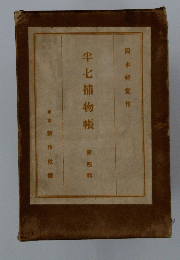 岡本綺堂作
半七捕物帳
第四輯
東京 新作社版